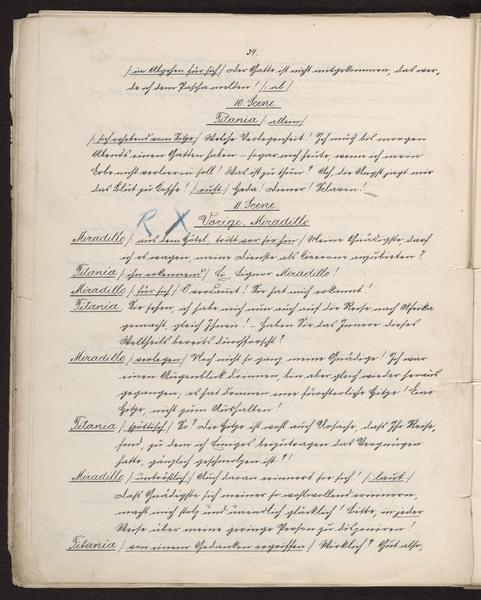 34.
/: im Abgehen für sich :/ Der Gatte ist nicht mitgekommen, das wer-
de ich dem Pascha melden! /: ab :/
10. Scene
Titania /: allein :/
/: sich erhebend vom Sitze :/ Welche Verlegenheit! Ich muß bis morgen
Abends einen Gatten haben – sogar noch heute, wenn ich mein
Erbe nicht verlieren soll! Was ist zu thun? Ach, die Angst jagt mir
das Blut zu Kopfe! /: ruft :/ Heda! Diener! Sclaven!
11. Scene
R X Vorige. Miradillo
Miradillo /: aus dem Hôtel, tritt vor sie hin :/ Meine Gnädigste, darf
ich es wagen, meine Dienste als Cicerone anzubieten?
Titania /: ihn erkennend :/ Signor Miradillo!
Miradillo /: für sich :/ O verdammt! Sie hat mich erkannt!
Titania Sie sehen, ich habe mich nun auch auf die Reise nach Afrika
gemacht, gleich Ihnen! – Haben Sie das Innere dieses
Welttheils bereits durchforscht?
Miradillo /: verlegen :/ Noch nicht so ganz, meine Gnädige! Ich war
einen Augenblick drinnen, bin aber gleich wieder heraus
gegangen; es hat drinnen eine fürchterliche Hitze! Eine
Hitze, nicht zum Aushalten!
Titania /: spöttisch :/ So? Die Hitze ist wohl auch Ursache, daß Ihr Reise-
fond, zu dem ich Einiges beizutragen das Vergnügen
hatte, gänzlich geschmolzen ist?!
Miradillo /: untröstlich :/ Auch daran erinnert sie sich! /: laut :/
Daß Gnädigste sich meiner so wohlwollend erinnern,
macht mich stolz und unendlich glücklich! Bitte, in jeder
Weise über meine geringe Person zu disponiren!
Titania /: von einem Gedanken ergriffen :/ Wirklich? Gut also,